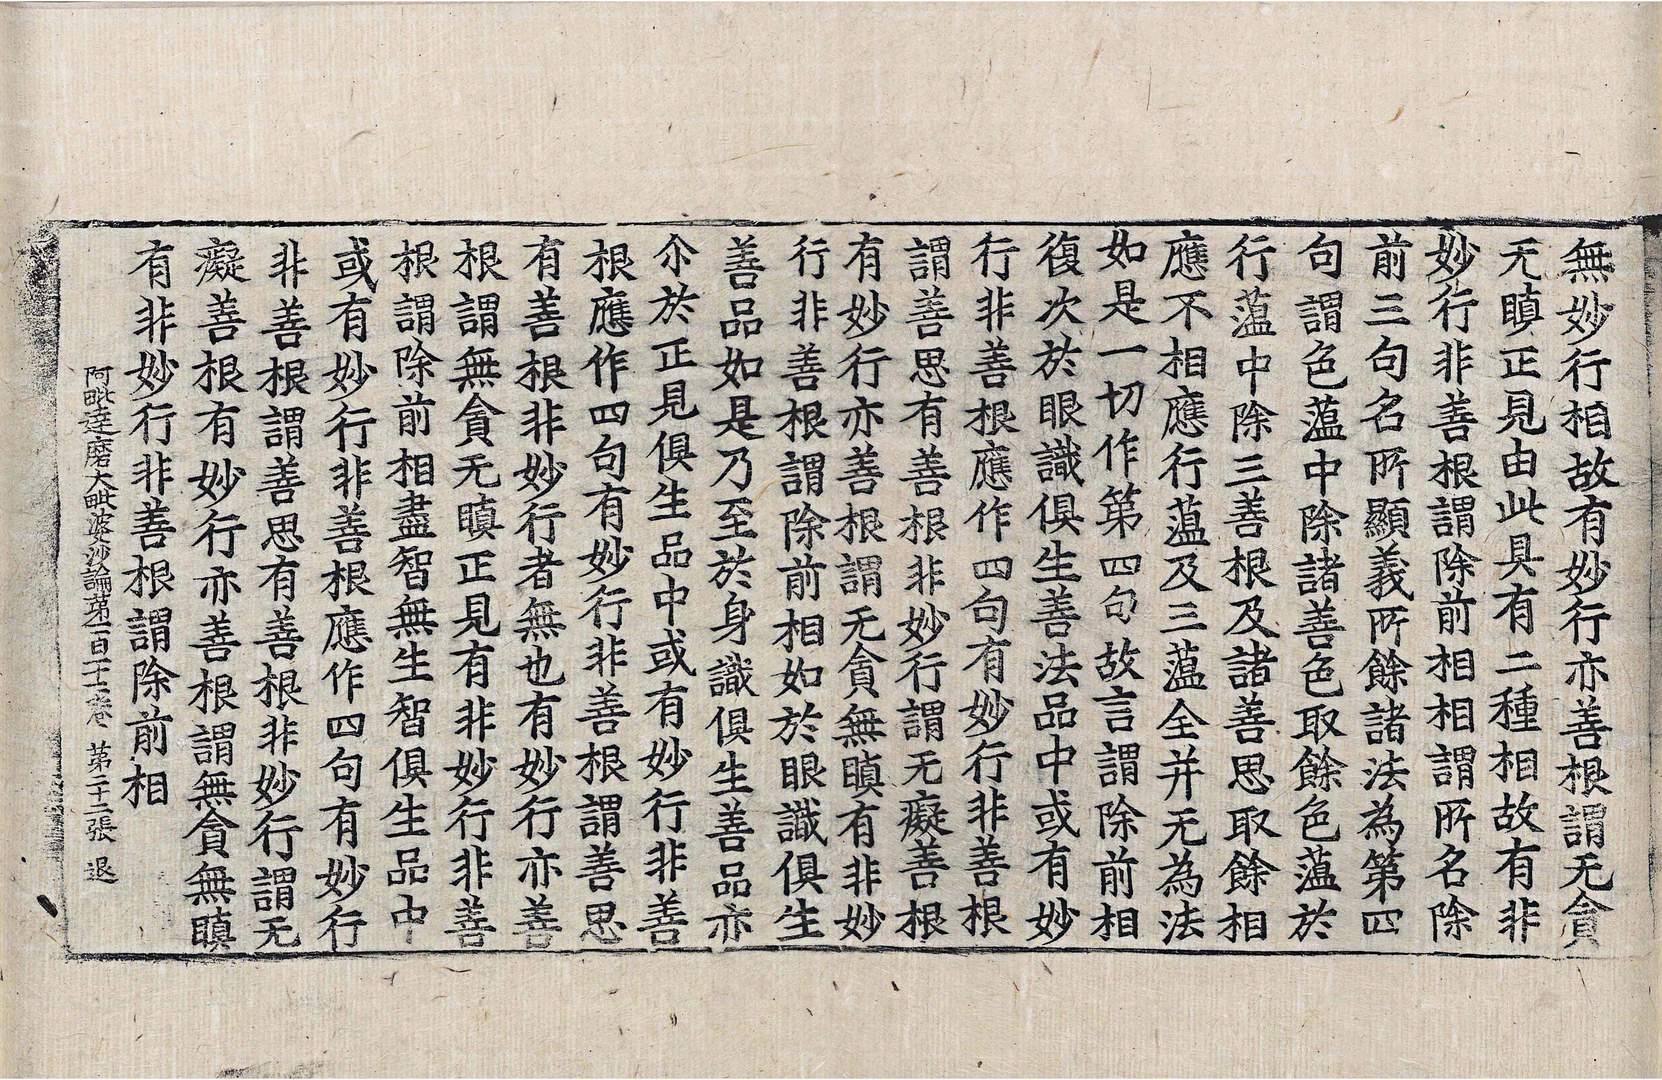 無妙行相故有妙行亦善根謂无貪
无瞋正見由此具有二種相故有非
妙行非善根謂除前相相謂所名除
前三句名所顯義所餘諸法為第四
句謂色蕰中除諸善色取餘色蕰於
行蕰中除三善根及諸善思取餘相
應不相應行蕰及三蕰全并无為法
如是一切作第四句故言謂除前相
復次於眼識俱生善法品中或有妙
行非善根應作四句有妙行非善根
謂善思有善根非妙行謂无癡善根
有妙行亦善根謂无貪無瞋有非妙
行非善根謂除前相如於眼識俱生
善品如是乃至於身識俱生善品亦
尒於正見俱生品中或有妙行非善
根應作四句有妙行非善根謂善思
有善根非妙行者無也有妙行亦善
根謂無貪无瞋正見有非妙行非善
根謂除前相盡智無生智俱生品中
或有妙行非善根應作四句有妙行
非善根謂善思有善根非妙行謂无
癡善根有妙行亦善根謂無貪無瞋
有非妙行非善根謂除前相
阿毗達磨大毗婆沙論苐一百一十二卷 第二十二張 退